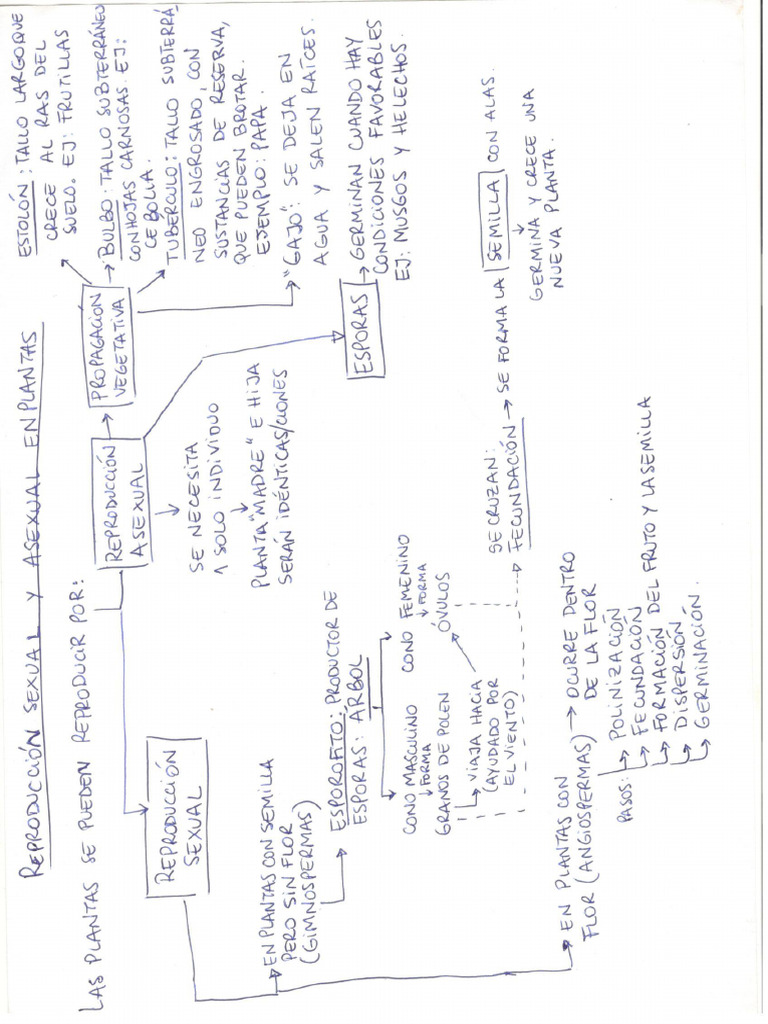 REPRODUCCIÓN SEXUAL Y ASEXUAL EN PLANTAS
LAS PLANTAS SE PUEDEN REPRODUCIR POR:
REPRODUCCIÓN
SEXUAL
EN PLANTAS CON SEMILLA
PERO SIN FLOR
(GIMNOSPERMAS)
ESPOROFITO: PRODUCTOR DE
ESPORAS: ÁRBOL
CONO MASCULINO
FORMA
GRANOS DE POLEN
VIAJA HACIA
(AYUDADO POR
EL VIENTO)
CONO FEMENINO
FORMA
ÓVULOS
SE CRUZAN:
FECUNDACIÓN → SE FORMA LA SEMILLA CON ALAS.
GERMINA Y CRECE UNA
NUEVA PLANTA.
EN PLANTAS CON
FLOR (ANGIOSPERMAS) → OCURRE DENTRO
DE LA FLOR
PASOS:
POLINIZACIÓN
FECUNDACIÓN
FORMACIÓN DEL FRUTO Y LA SEMILLA
DISPERSIÓN
GERMINACIÓN.
REPRODUCCIÓN
ASEXUAL
SE NECESITA
1 SOLO INDIVIDUO
PLANTA "MADRE" E HIJA
SERÁN IDÉNTICAS/CLONES
PROPAGACIÓN
VEGETATIVA
ESTOLÓN: TALLO LARGO QUE
CRECE AL RAS DEL
SUELO. EJ: FRUTILLAS
BULBO: TALLO SUBTERRÁNEO
CON HOJAS CARNOSAS. EJ:
CEBOLLA.
TUBÉRCULO: TALLO SUBTERRÁ
NEO ENGROSADO, CON
SUSTANCIAS DE RESERVA,
QUE PUEDEN BROTAR.
EJEMPLO: PAPA.
"GAJO": SE DEJA EN
AGUA Y SALEN RAÍCES.
ESPORAS → GERMINAN CUANDO HAY
CONDICIONES FAVORABLES
EJ: MUSGOS Y HELECHOS.